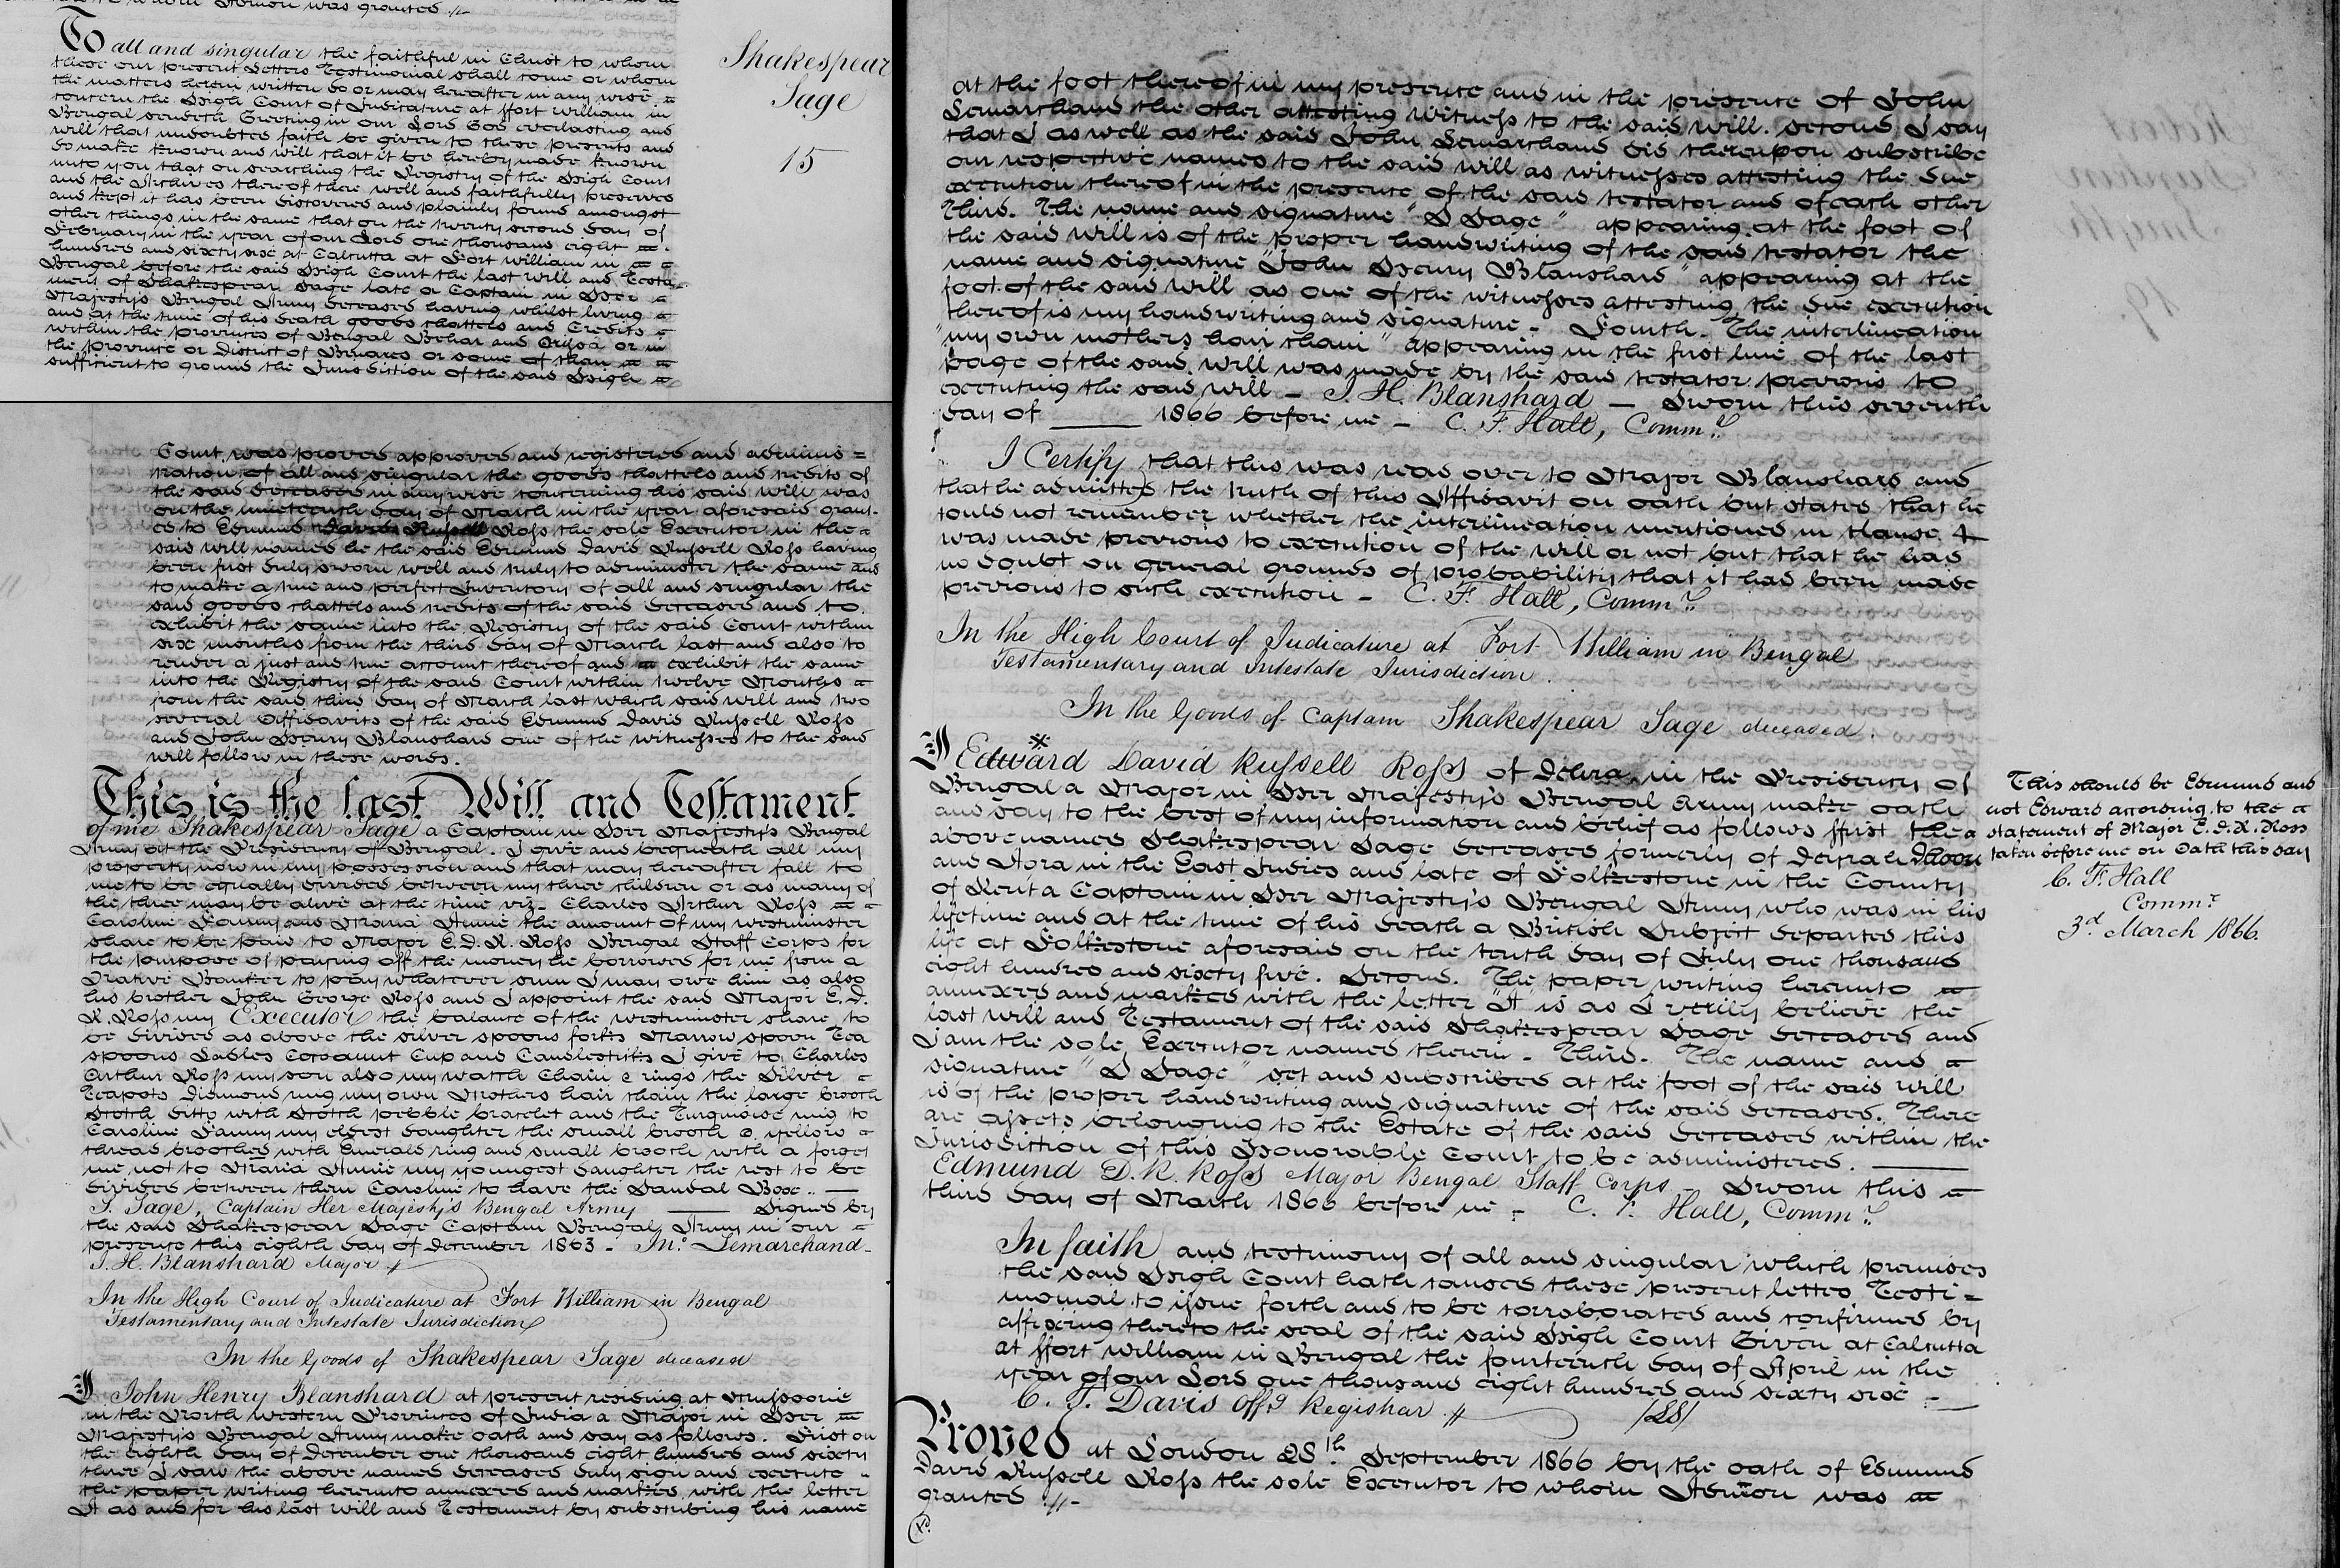 To all and singular the faithful in Christ to whom
these our present Letters Testimonial shall come or whom
the matters herein written do or may hereafter in any wise
concern the High Court of Judicature at ffort William in
Bengal sendeth Greeting in our Lord God everlasting and
will that undoubted faith be given to these presents and
do make known and will that it be hereby made known
unto you that on searching the Registry of the High Court
and the Archives thereof there well and faithfully preserved
and kept it has been discovered and plainly found amongst
other things in the same that on the twenty second day of
February in the year of our Lord one thousand eight
hundred and sixty six at Calcutta at Fort William in
Bengal before the said High Court the last Will and Testa-
ment of Shakespear Sage late a Captain in Her
Majesty's Bengal Army deceased having whilst living
and at the time of his death goods chattels and Credits
within the provinces of Bengal Behar and Orissa or in
the province or District of Benares or some of them
sufficient to ground the Jurisdiction of the said High
Shakespear
Sage
15
Court was proved approved and registered and adminis =
tration of all and singular the goods chattels and credits of
the said deceased in anywise concerning his said will was
on the nineteenth day of March in the year aforesaid gran-
ed to Edmund David Russell Ross the sole Executor in the
said will named he the said Edmund David Russell Ross having
been first duly sworn well and truly to administer the same and
to make a true and perfect Inventory of all and singular the
said goods chattels and credits of the said deceased and to
exhibit the same into the Registry of the said Court within
six months from the third day of March last and also to
render a just and true account thereof and exhibit the same
into the Registry of the said Court within twelve Months
from the said third day of March last which said will and two
several Affidavits of the said Edmund David Russell Ross
and John Henry Blanshard one of the witnesses to the said
will follow in these words.
This is the last Will and Testament
of me Shakespear Sage a Captain in Her Majesty's Bengal
Army at the Presidency of Bengal. I give and bequeath all my
property now in my possession and that may hereafter fall to
me to be equally divided between my three children or as many of
the three may be alive at the time viz. Charles Arthur Ross
Caroline Fanny and Maria Annie the amount of my westminster
share to be paid to Major E. D. R. Ross Bengal Staff Corps for
the purpose of paying off the money he borrowed for me from a
Native Banker to pay whatever sum I may owe him as also
his brother John George Ross and I appoint the said Major E. D.
R. Ross my Executor the balance of the westminster share to
be divided as above the silver spoons forks Marrow spoon Tea
spoons Ladles Cocoanut Cup and Candlesticks I give to Charles
Arthur Ross my son also my watch Chain & rings the Silver
Teapots Diamond ring my own Mothers hair chain the large brooch
Scotch ditto with Scotch pebble bracelet and the Turquoise ring to
Caroline Fanny my eldest daughter the small brooch & yellow
thread brooches with Emerald ring and small brooch with a forget
me not to Maria Annie my youngest daughter the rest to be
divided between them Caroline to have the Sandal Box..
S. Sage, Captain Her Majesty's Bengal Army Signed by
the said Shakespear Sage Captain Bengal Army in our
presence this eighth day of December 1863 - Jno. Lemarchand -
J. H. Blanshard Major
In the High Court of Judicature at Fort William in Bengal
Testamentary and Intestate Jurisdiction
In the Goods of Shakespear Sage deceased
I John Henry Blanshard at present residing at Mussoorie
in the North Western Provinces of India a Major in Her
Majesty's Bengal Army make oath and say as follows. First on
the eighth day of December one thousand eight hundred and sixty
three I saw the above named deceased duly sign and execute
the paper writing hereunto annexed and marked with the letter
A as and for his last will and Testament by subscribing his name
at the foot thereof in my presence and in the presence of John
Lemarchand the other attesting witness to the said will. Second I say
that I as well as the said John Lemarchand did thereupon subscribe
our respective names to the said will as witnesses attesting the due
execution thereof in the presence of the said testator and of each other
Third. The name and signature "S Sage" appearing at the foot of
the said will is of the proper handwriting of the said testator the
name and signature "John Henry Blanshard" appearing at the
foot of the said will as one of the witnesses attesting the due execution
thereof is my handwriting and signature - Fourth. The interlineation
"my own mothers hair chain" appearing in the first line of the last
page of the said will was made by the said testator previous to
executing the said will - J. H. Blanshard - Sworn this seventh
day of 1866 before me - C. F. Hall, Commr.
I Certify that this was read over to Major Blanshard and
that he admitted the truth of this Affidavit on oath but states that he
could not remember whether the interlineation mentioned in clause 4
was made previous to execution of the will or not but that he had
no doubt on general grounds of probability that it had been made
previous to such execution - C. F. Hall, Commr.
In the High Court of Judicature at Fort William in Bengal
Testamentary and Intestate Jurisdiction.
In the Goods of Captain Shakespear Sage deceased.
I Edward David Russell Ross of Dehra in the Presidency of
Bengal a Major in Her Majesty's Bengal Army make oath
and say to the best of my information and belief as follows ffirst the
abovenamed Shakespear Sage deceased formerly of Deyrah Dhoon
and Agra in the East Indies and late of Folkestone in the County
of Kent a Captain in Her Majesty's Bengal Army who was in his
lifetime and at the time of his death a British Subject departed this
life at Folkestone aforesaid on the tenth day of July one thousand
eight hundred and sixty five. Second. The paper writing hereunto
annexed and marked with the letter "A" is as I verily believe the
last will and Testament of the said Shakespear Sage deceased and
I am the sole Executor named therein - Third. The name and
signature "S Sage" set and subscribed at the foot of the said will
is of the proper handwriting and signature of the said deceased. There
are assets belonging to the Estate of the said deceased within the
Jurisdiction of this Honorable Court to be administered.
Edmund D. R. Ross Major Bengal Staff Corps - Sworn this
third day of March 1866 before me - C. F. Hall, Commr.
This should be Edmund and
not Edward according to the
statement of Major E. D. R. Ross
taken before me on Oath this day
C. F. Hall
Commr.
3d. March 1866.
In faith and testimony of all and singular which premises
the said High Court hath caused these present letters Testi =
monial to issue forth and to be corroborated and confirmed by
affixing thereto the seal of the said High Court Given at Calcutta
at ffort William in Bengal the fourteenth day of April in the
year of our Lord one thousand eight hundred and sixty six -
C. F. Davis Offg Registrar /LS/
Proved at London 28th. September 1866 by the oath of Edmund
David Russell Ross the sole Executor to whom Admon was
granted